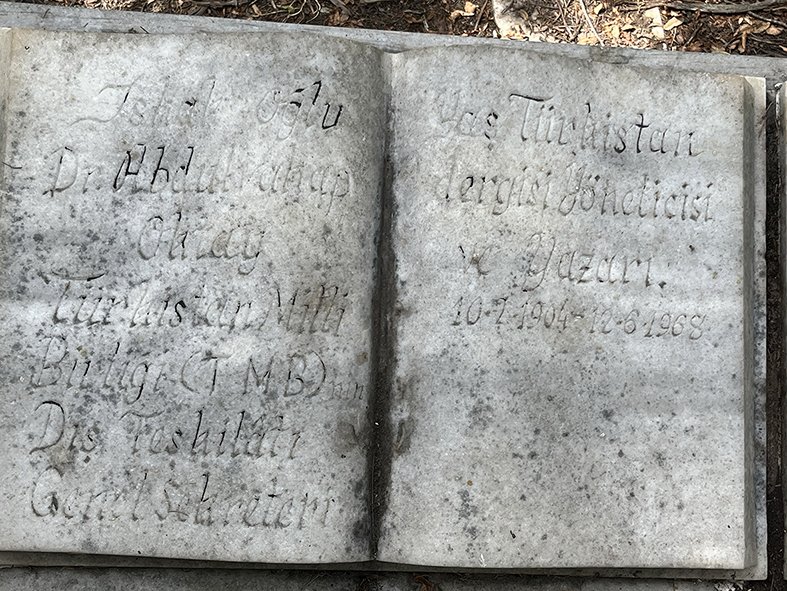 İshak oğlu
Dr. Abdulvahap
Oktay
Türkistan Milli
Birligi (T M B) nin
Dış Teşkilâtı
Genel Sekreteri
Yaş Türkistan
dergisi Yöneticisi
ve Yazarı.
10-7-1904-12-6-1968